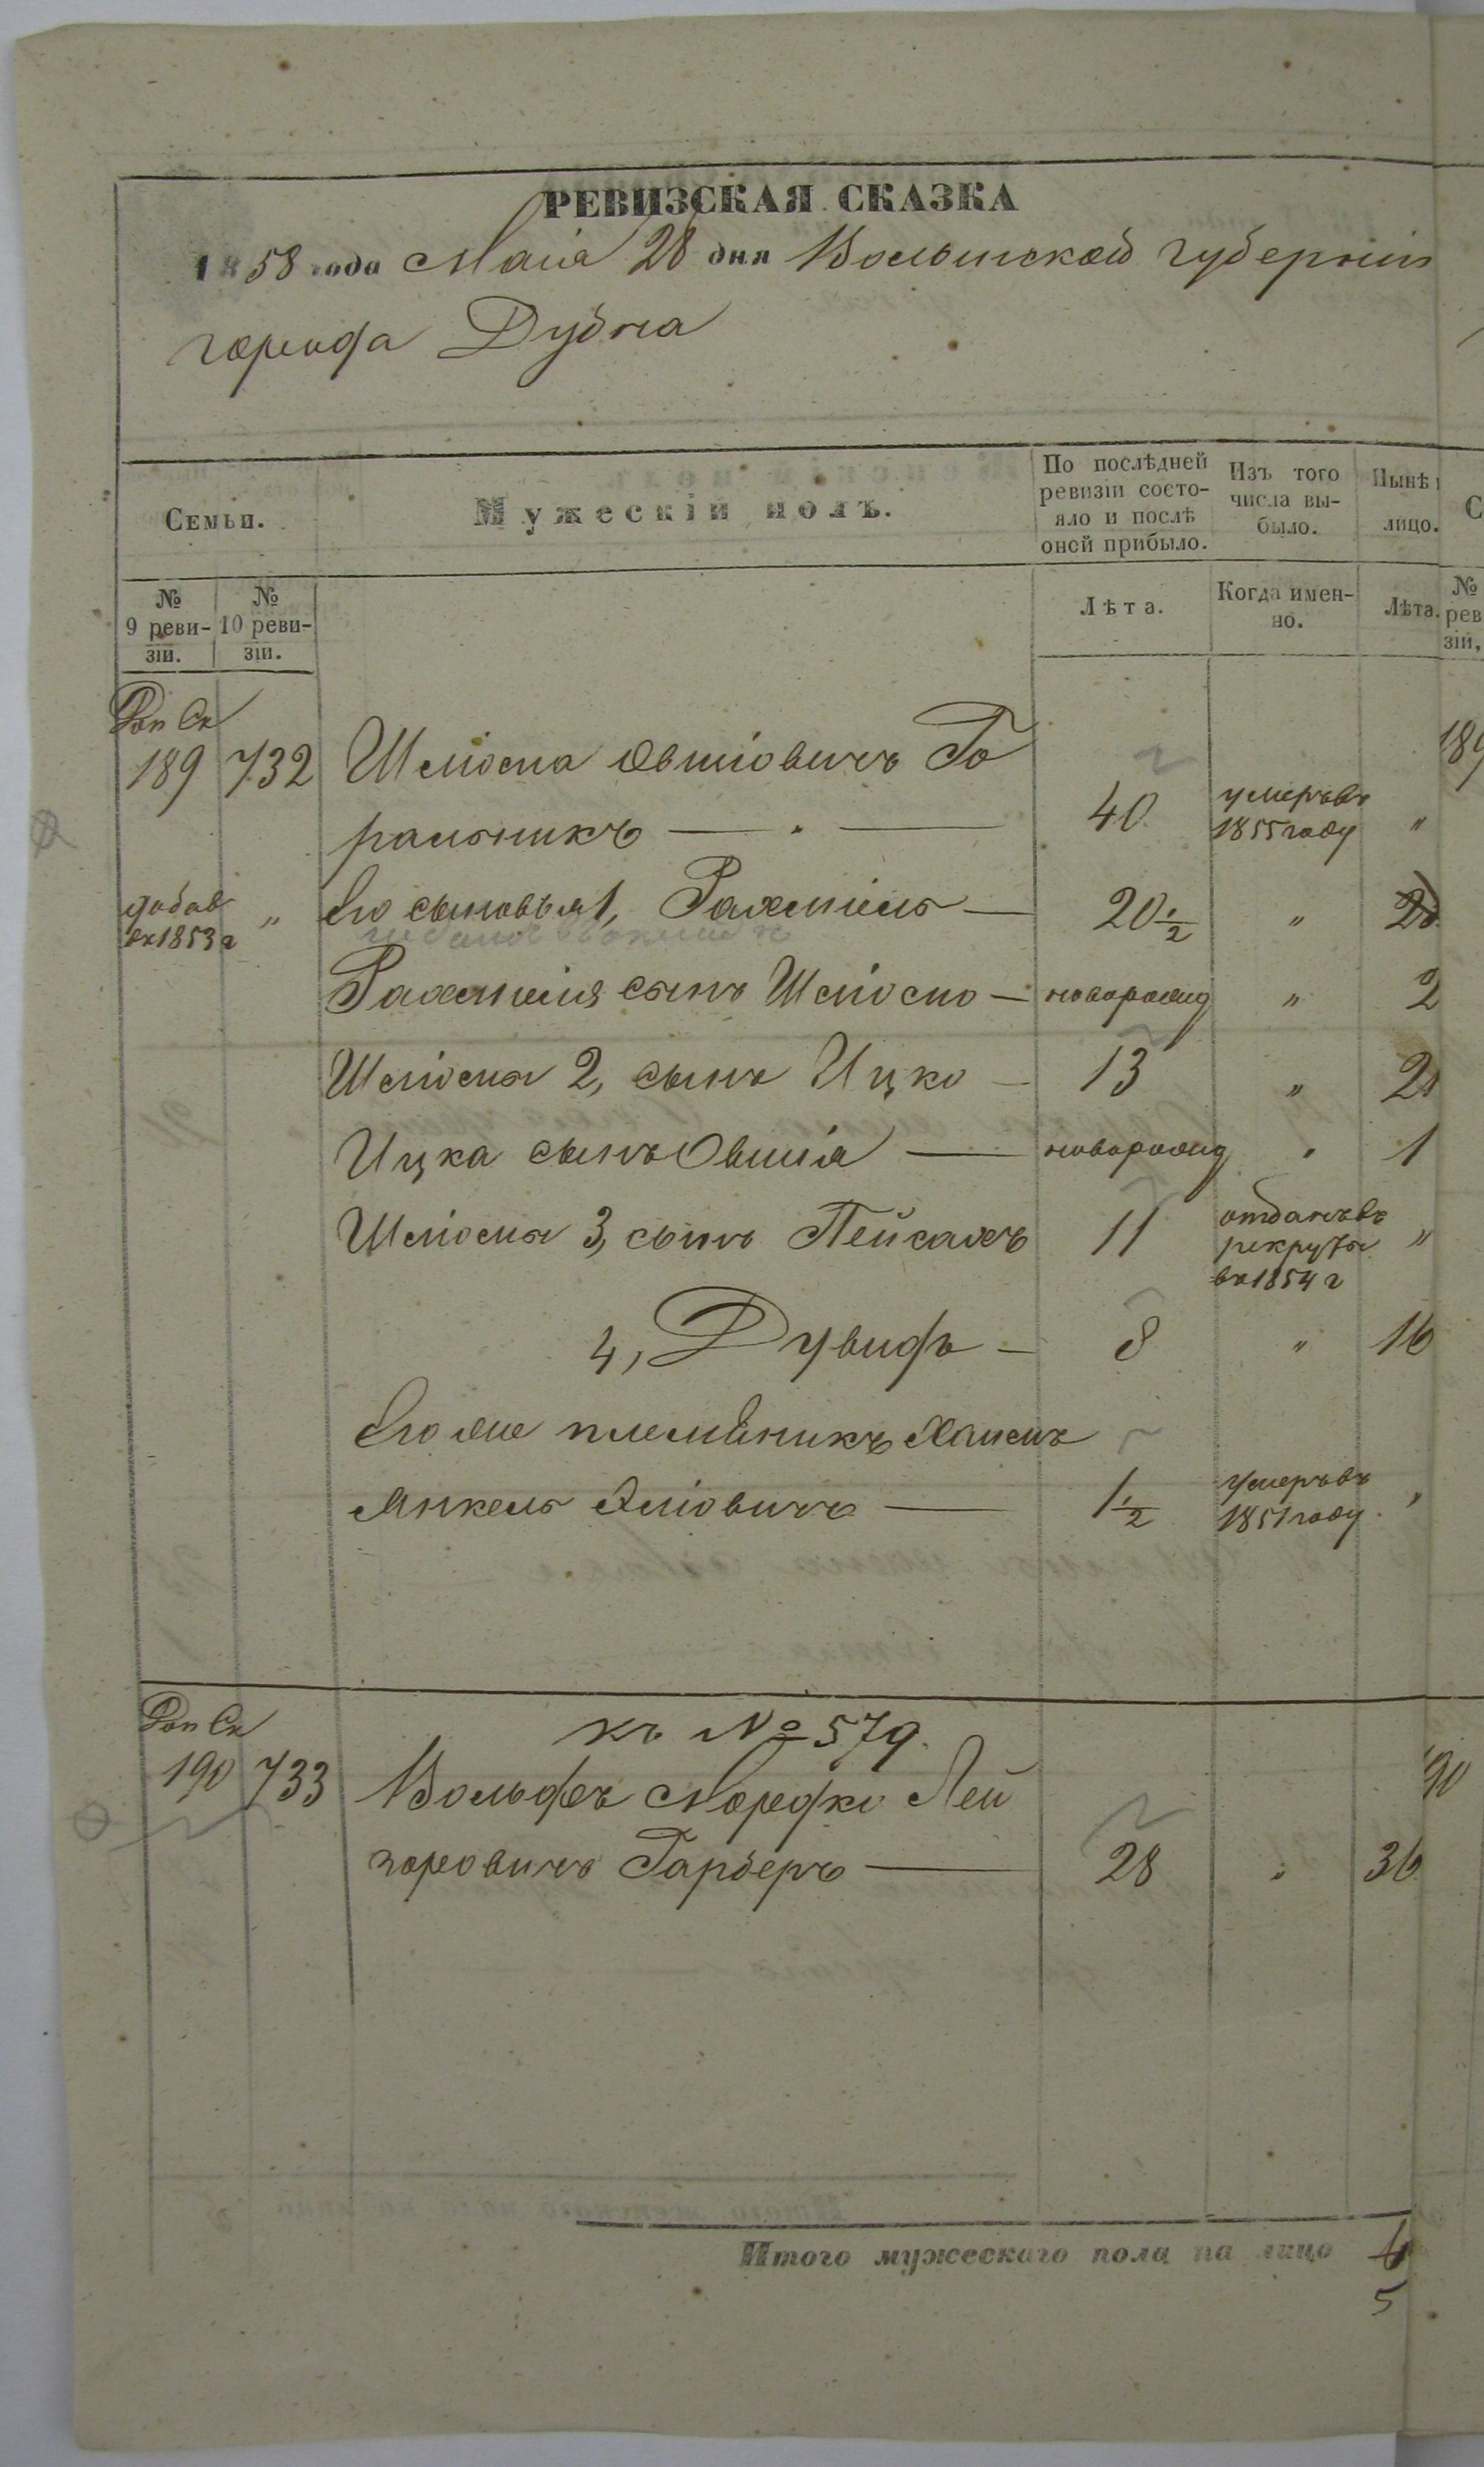 РЕВИЗСКАЯ СКАЗКА
1858 года Маія 28 дня Волынской губерніи
города Дубна
Семьи.
Мужескій полъ.
По послѣдней ревизіи состо-
яло и послѣ
оней прибыло.
Изъ того
числа вы-
было.
Нынѣ
лицо.
№
9 реви-
зіи.
№
10 реви-
зіи.
Лѣта.
Когда имен-
но.
Лѣта.
№
рев
зій,
Доп Ск
189 732 Шліома Овшіовичъ Го
ральникъ — 40 умеръ въ 1855 году "
добав въ 1853 г " Его сыновья 1, Рахміель — 20 1/2 "
Рахміеля сынъ Шліомо — новорожд " 2
Шліомы 2, сынъ Ицко — 13 " 21
Ицка сынъ Овшія — новорожд " 1
Шліомы 3, сынъ Пейсахъ 11 отданъ въ рекруты въ 1854 г "
4, Дувидъ — 8 " 16
Его же племянникъ Хаимъ
Янкель Эліовичъ — 1 1/2 умеръ въ 1851 году "
Доп Ск
къ № 579.
190 733 Вольфъ Мордко Лей
зоровичъ Гарберъ — 28 " 36
Итого мужескаго пола на лицо 6
5